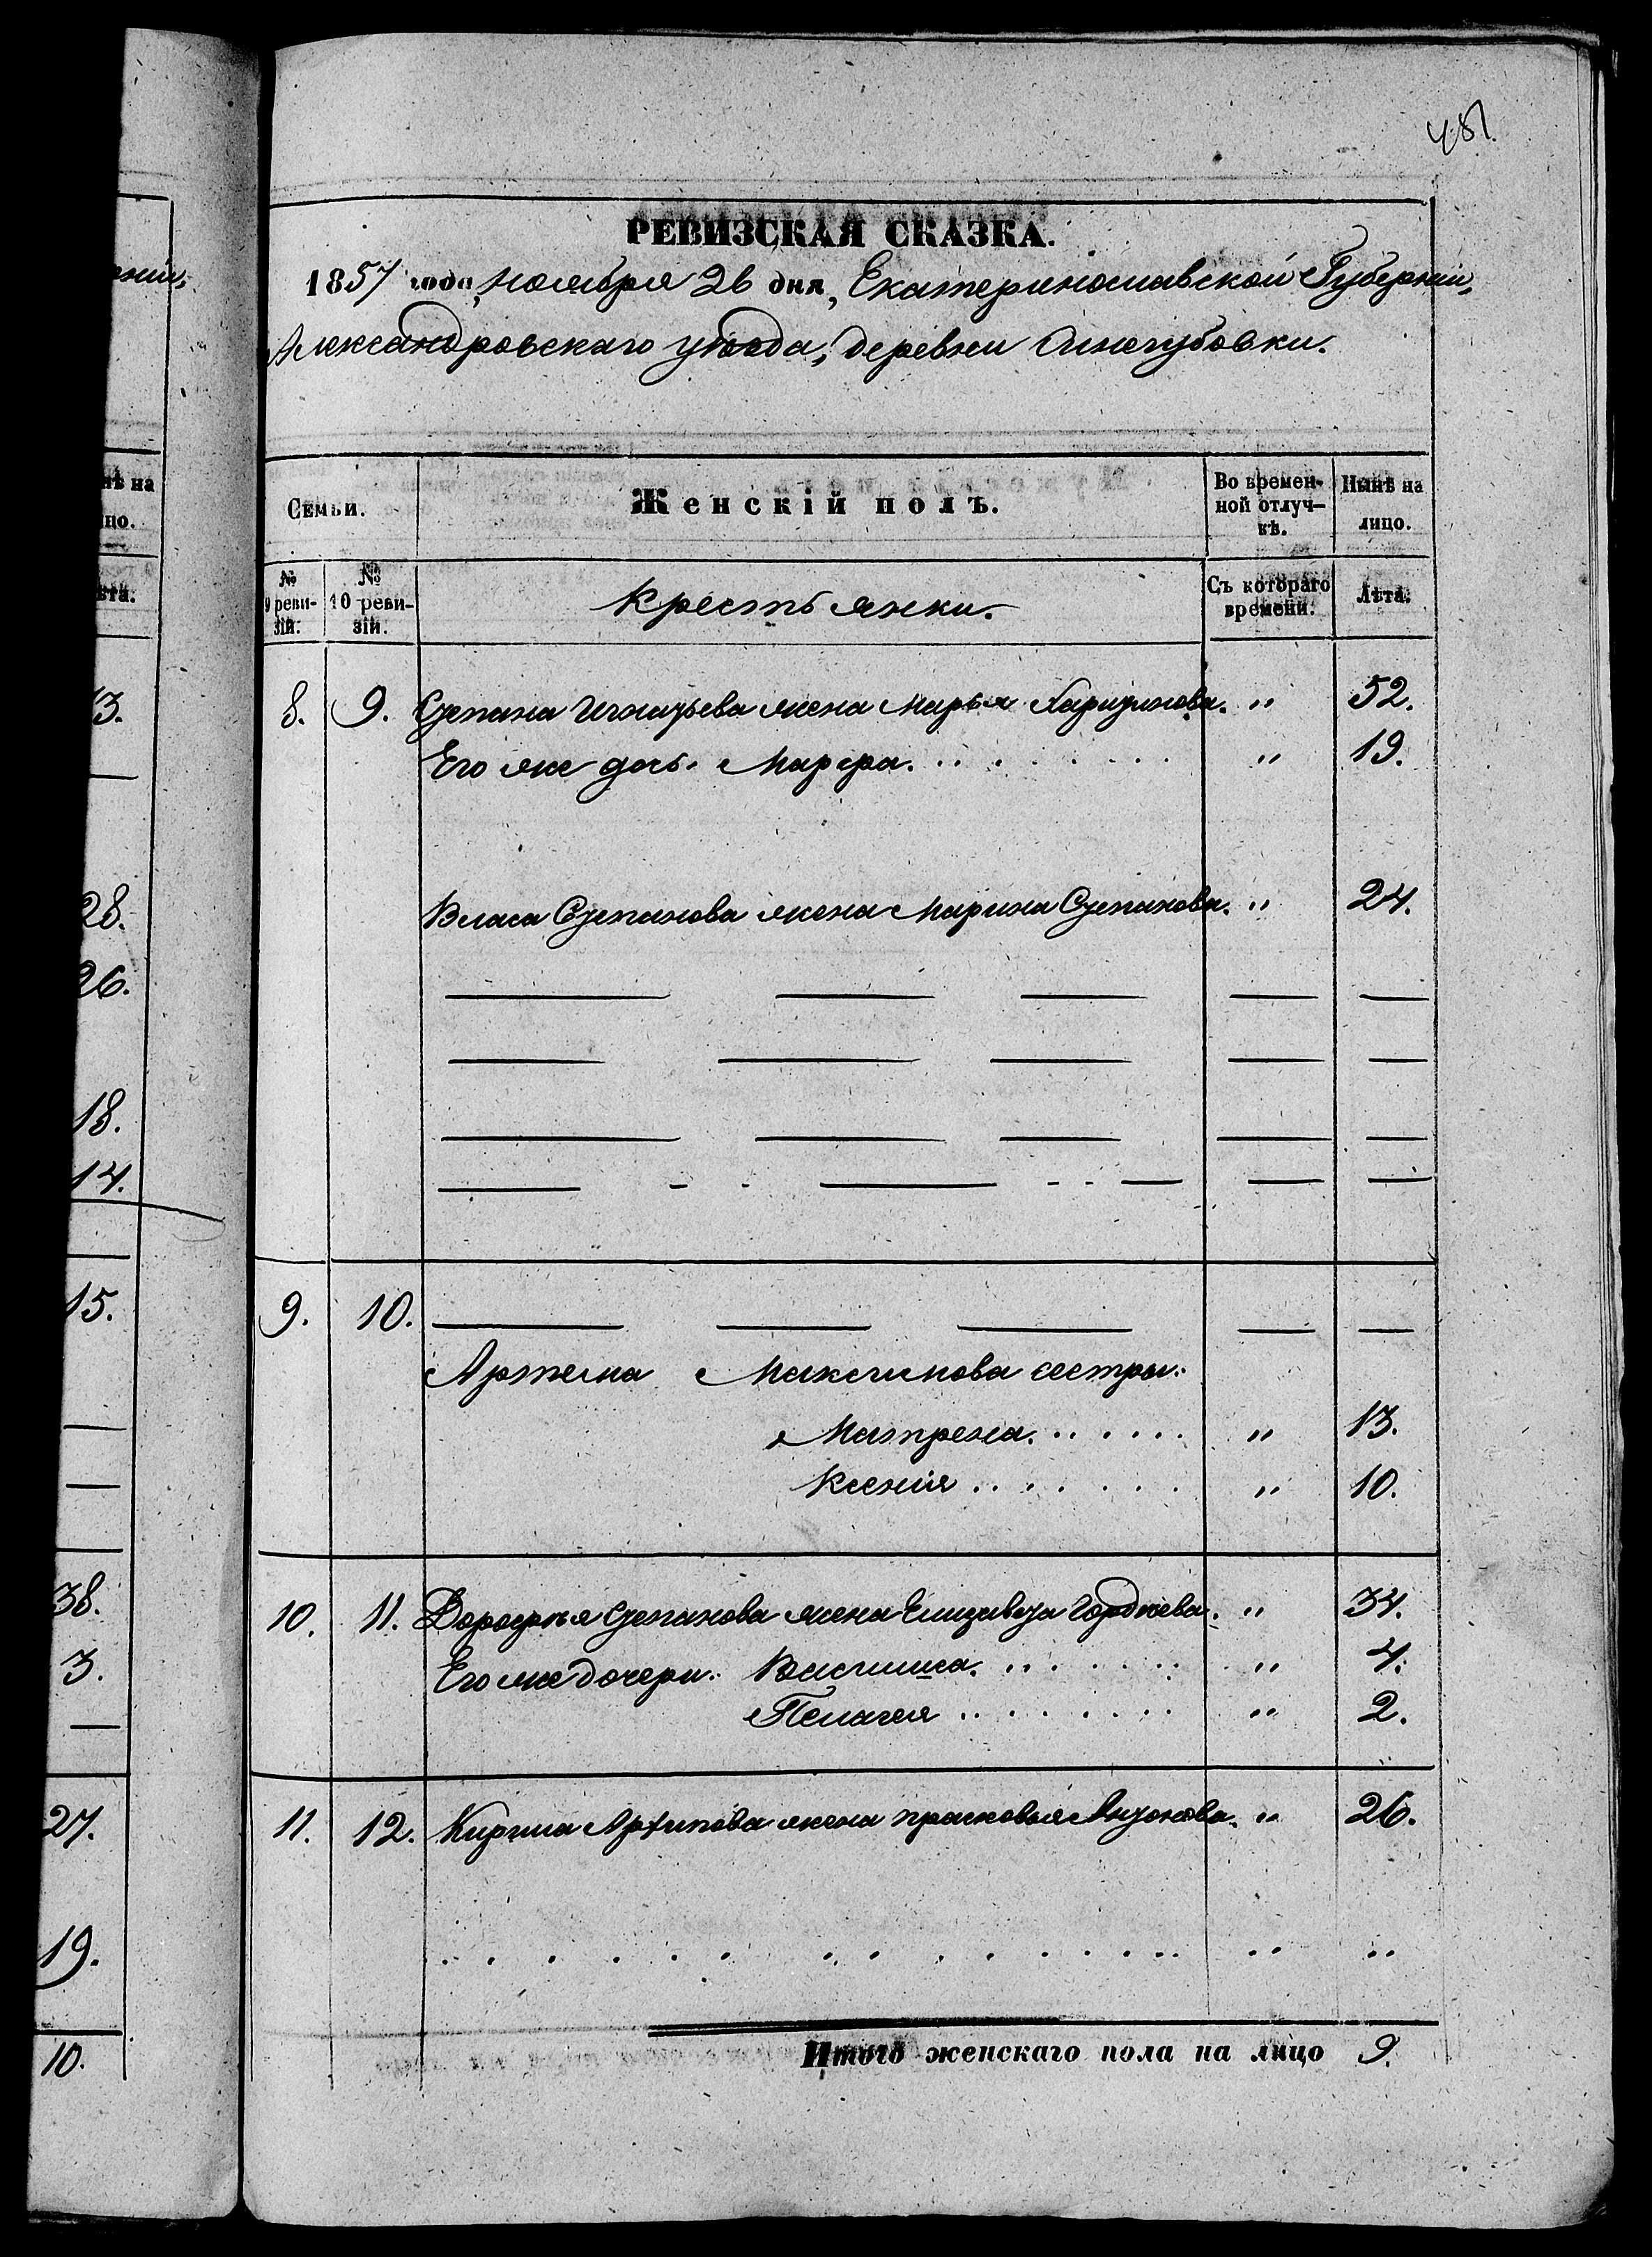 481.
РЕВИЗСКАЯ СКАЗКА.
1857 года, ноября 26 дня, Екатеринославской Губерніи,
Александровскаго уѣзда, деревни
Семьи.
Женскій полъ.
Во времен-
ной отлуч-
кѣ.
Нынѣ на
лицо.
№
9 реви-
зіи.
№
10 реви-
зіи.
Крестьянки.
Съ котораго
времени.
Лѣта.
8. 9. Степана Игнатьева жена Марья Харитонова. " 52.
Его же дочь Марфа. " 19.
Власа Степанова жена Марина Степанова. " 24.
9. 10.
Артема Максимова сестры:
Матрена. " 13.
Ксенія " 10.
10. 11. Дорофѣя Степанова жена Елизавета Гордѣева. " 34.
Его же дочери: Василиса. " 4.
Пелагея " 2.
11. 12. Кирила Архипова жена Прасковья Антонова. " 26.
Итого женскаго пола на лицо 9.
нѣ на
цо.
ѣта.
13.
28.
26.
18.
14.
15.
38.
3.
27.
19.
10.